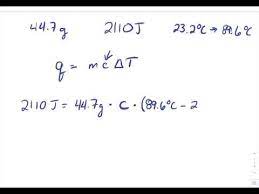 44.7g 2110 J 23.2°C → 89.6°C
q = mcΔT
2110 J = 44.7g · c · (89.6°C - 2